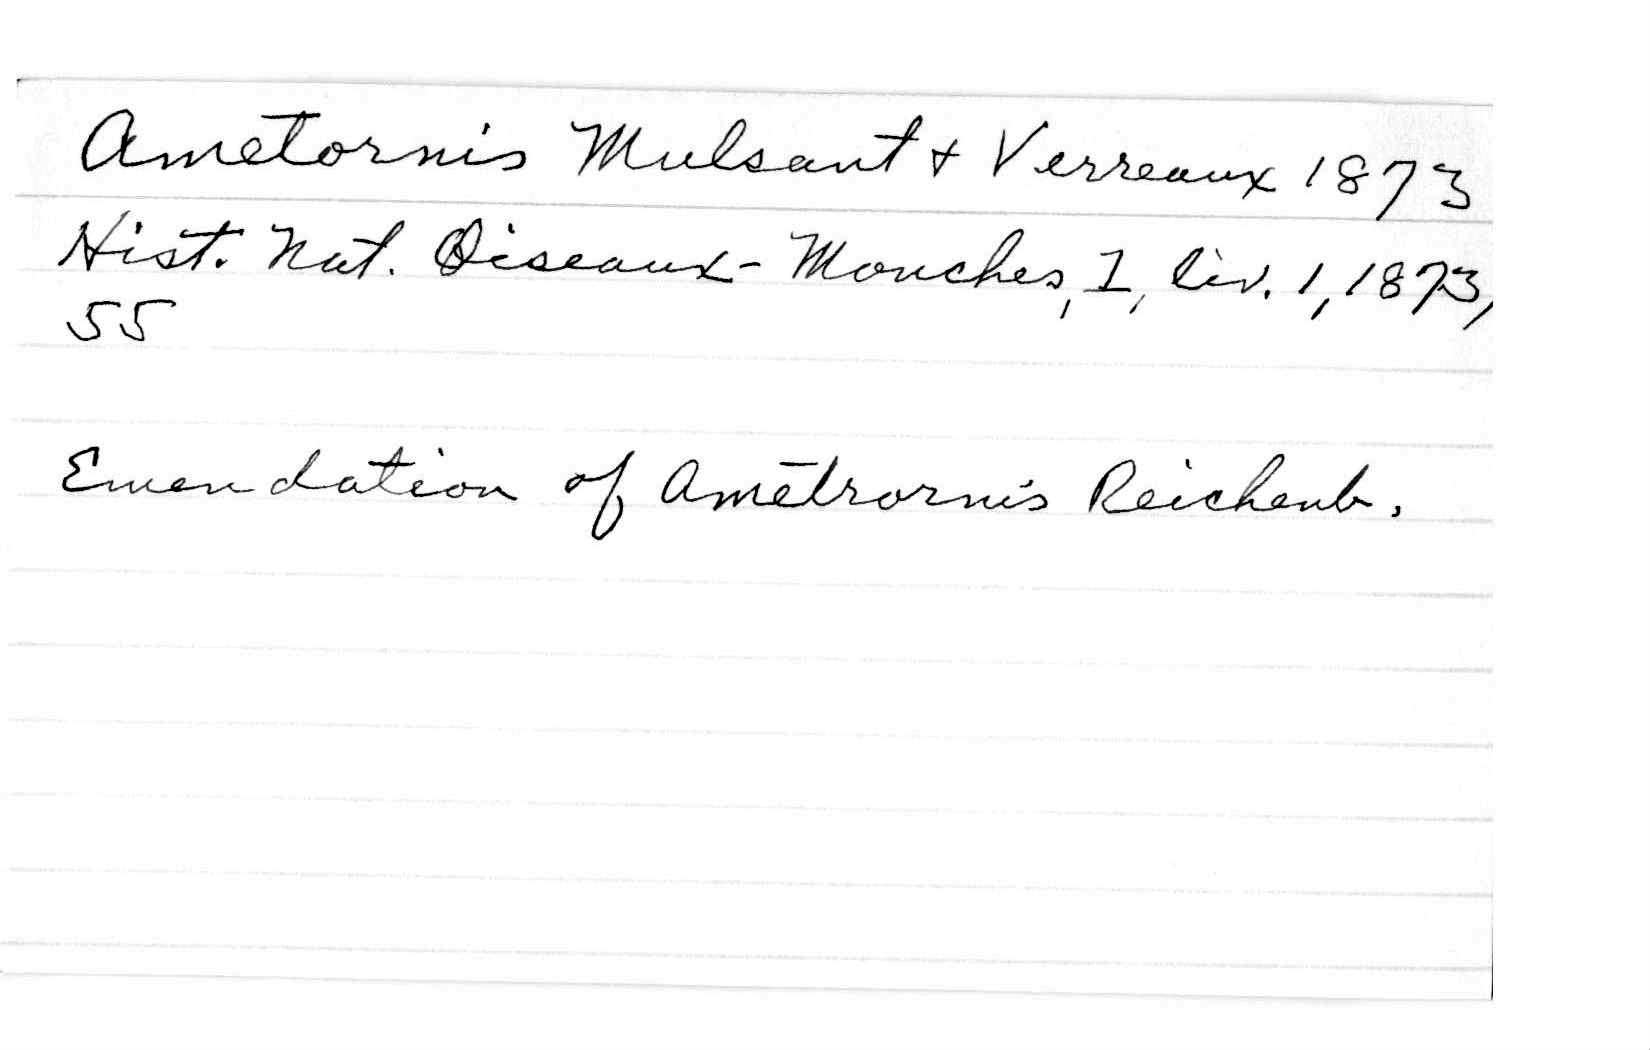 Ametornis Mulsant + Verreaux 1873
Hist. Nat. Oiseaux-Mouches, I, liv. 1, 1873,
55
Emendation of Ametrornis Reichenb.